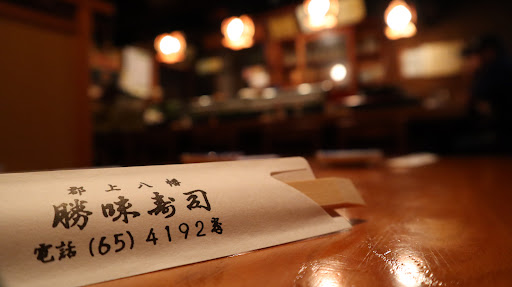 郡上八幡
勝味寿司
電話(65)4192番